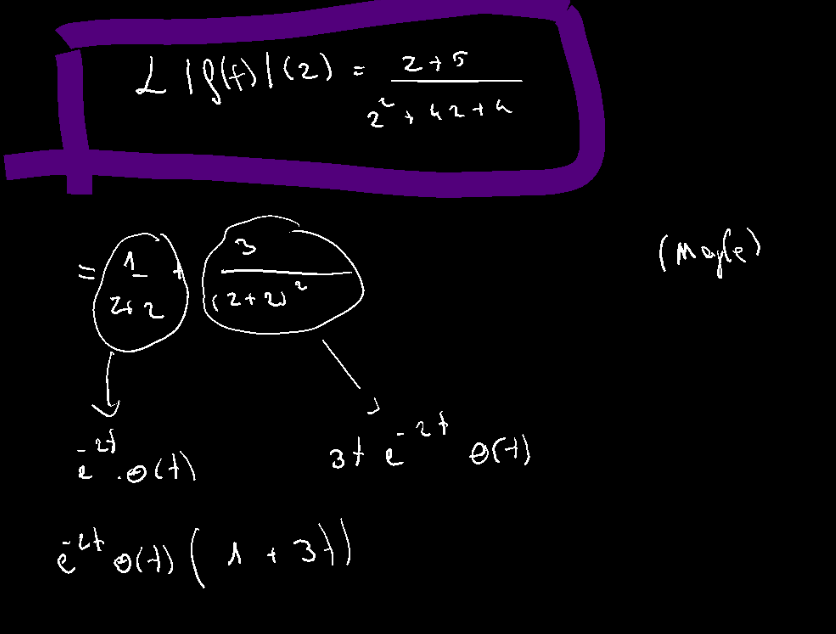 L |f(t)| (z) = z+5 / z² + 4z + 4
= 1 / z+2 + 3 / (z+2)²
(Maybe)
e^-2t . θ(t) 3t e^-2t θ(t)
e^-2t θ(t) ( 1 + 3t)